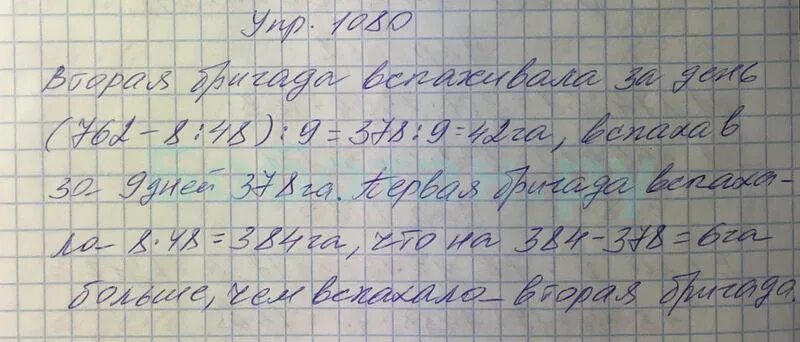 Упр. 1080
Вторая бригада вспахивала за день
(762-8:48):9=378:9=42га, вспахав
за 9дней 378га. Первая бригада вспаха-
ла 8·48=384га, что на 384-378=6га
больше, чем вспахала вторая бригада.